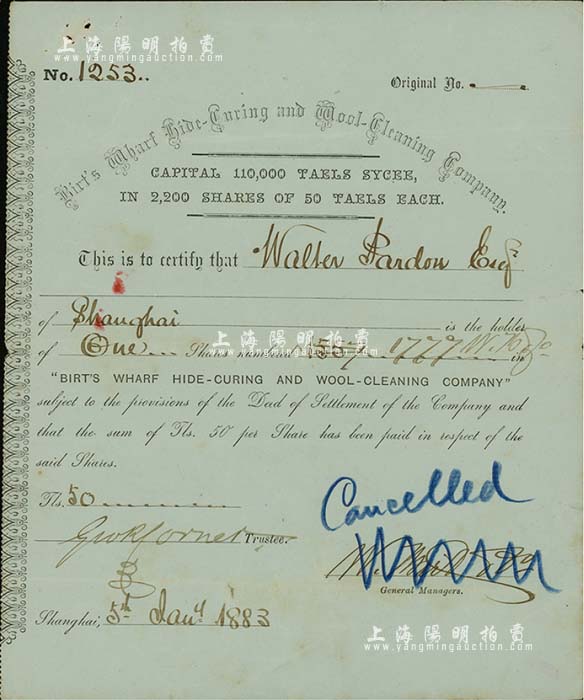 上海陽明拍賣
www.yangmingauction.com
No. 1253..
Original No.
Birt's Wharf Hide-Curing and Wool-Cleaning Company.
CAPITAL 110,000 TAELS SYCEE,
IN 2,200 SHARES OF 50 TAELS EACH.
This is to certify that Walter Pardon Esqr
of Shanghai is the holder
of One Shares numbered 1777 in
"BIRT'S WHARF HIDE-CURING AND WOOL-CLEANING COMPANY"
subject to the provisions of the Deed of Settlement of the Company and
that the sum of Tls. 50 per Share has been paid in respect of the
said Shares.
上海陽明拍賣
www.yangmingauction.com
Tls. 50
Cancelled
Trustee.
General Managers.
Shanghai, 5th Jany 1883
上海陽明拍賣
www.yangmingauction.com